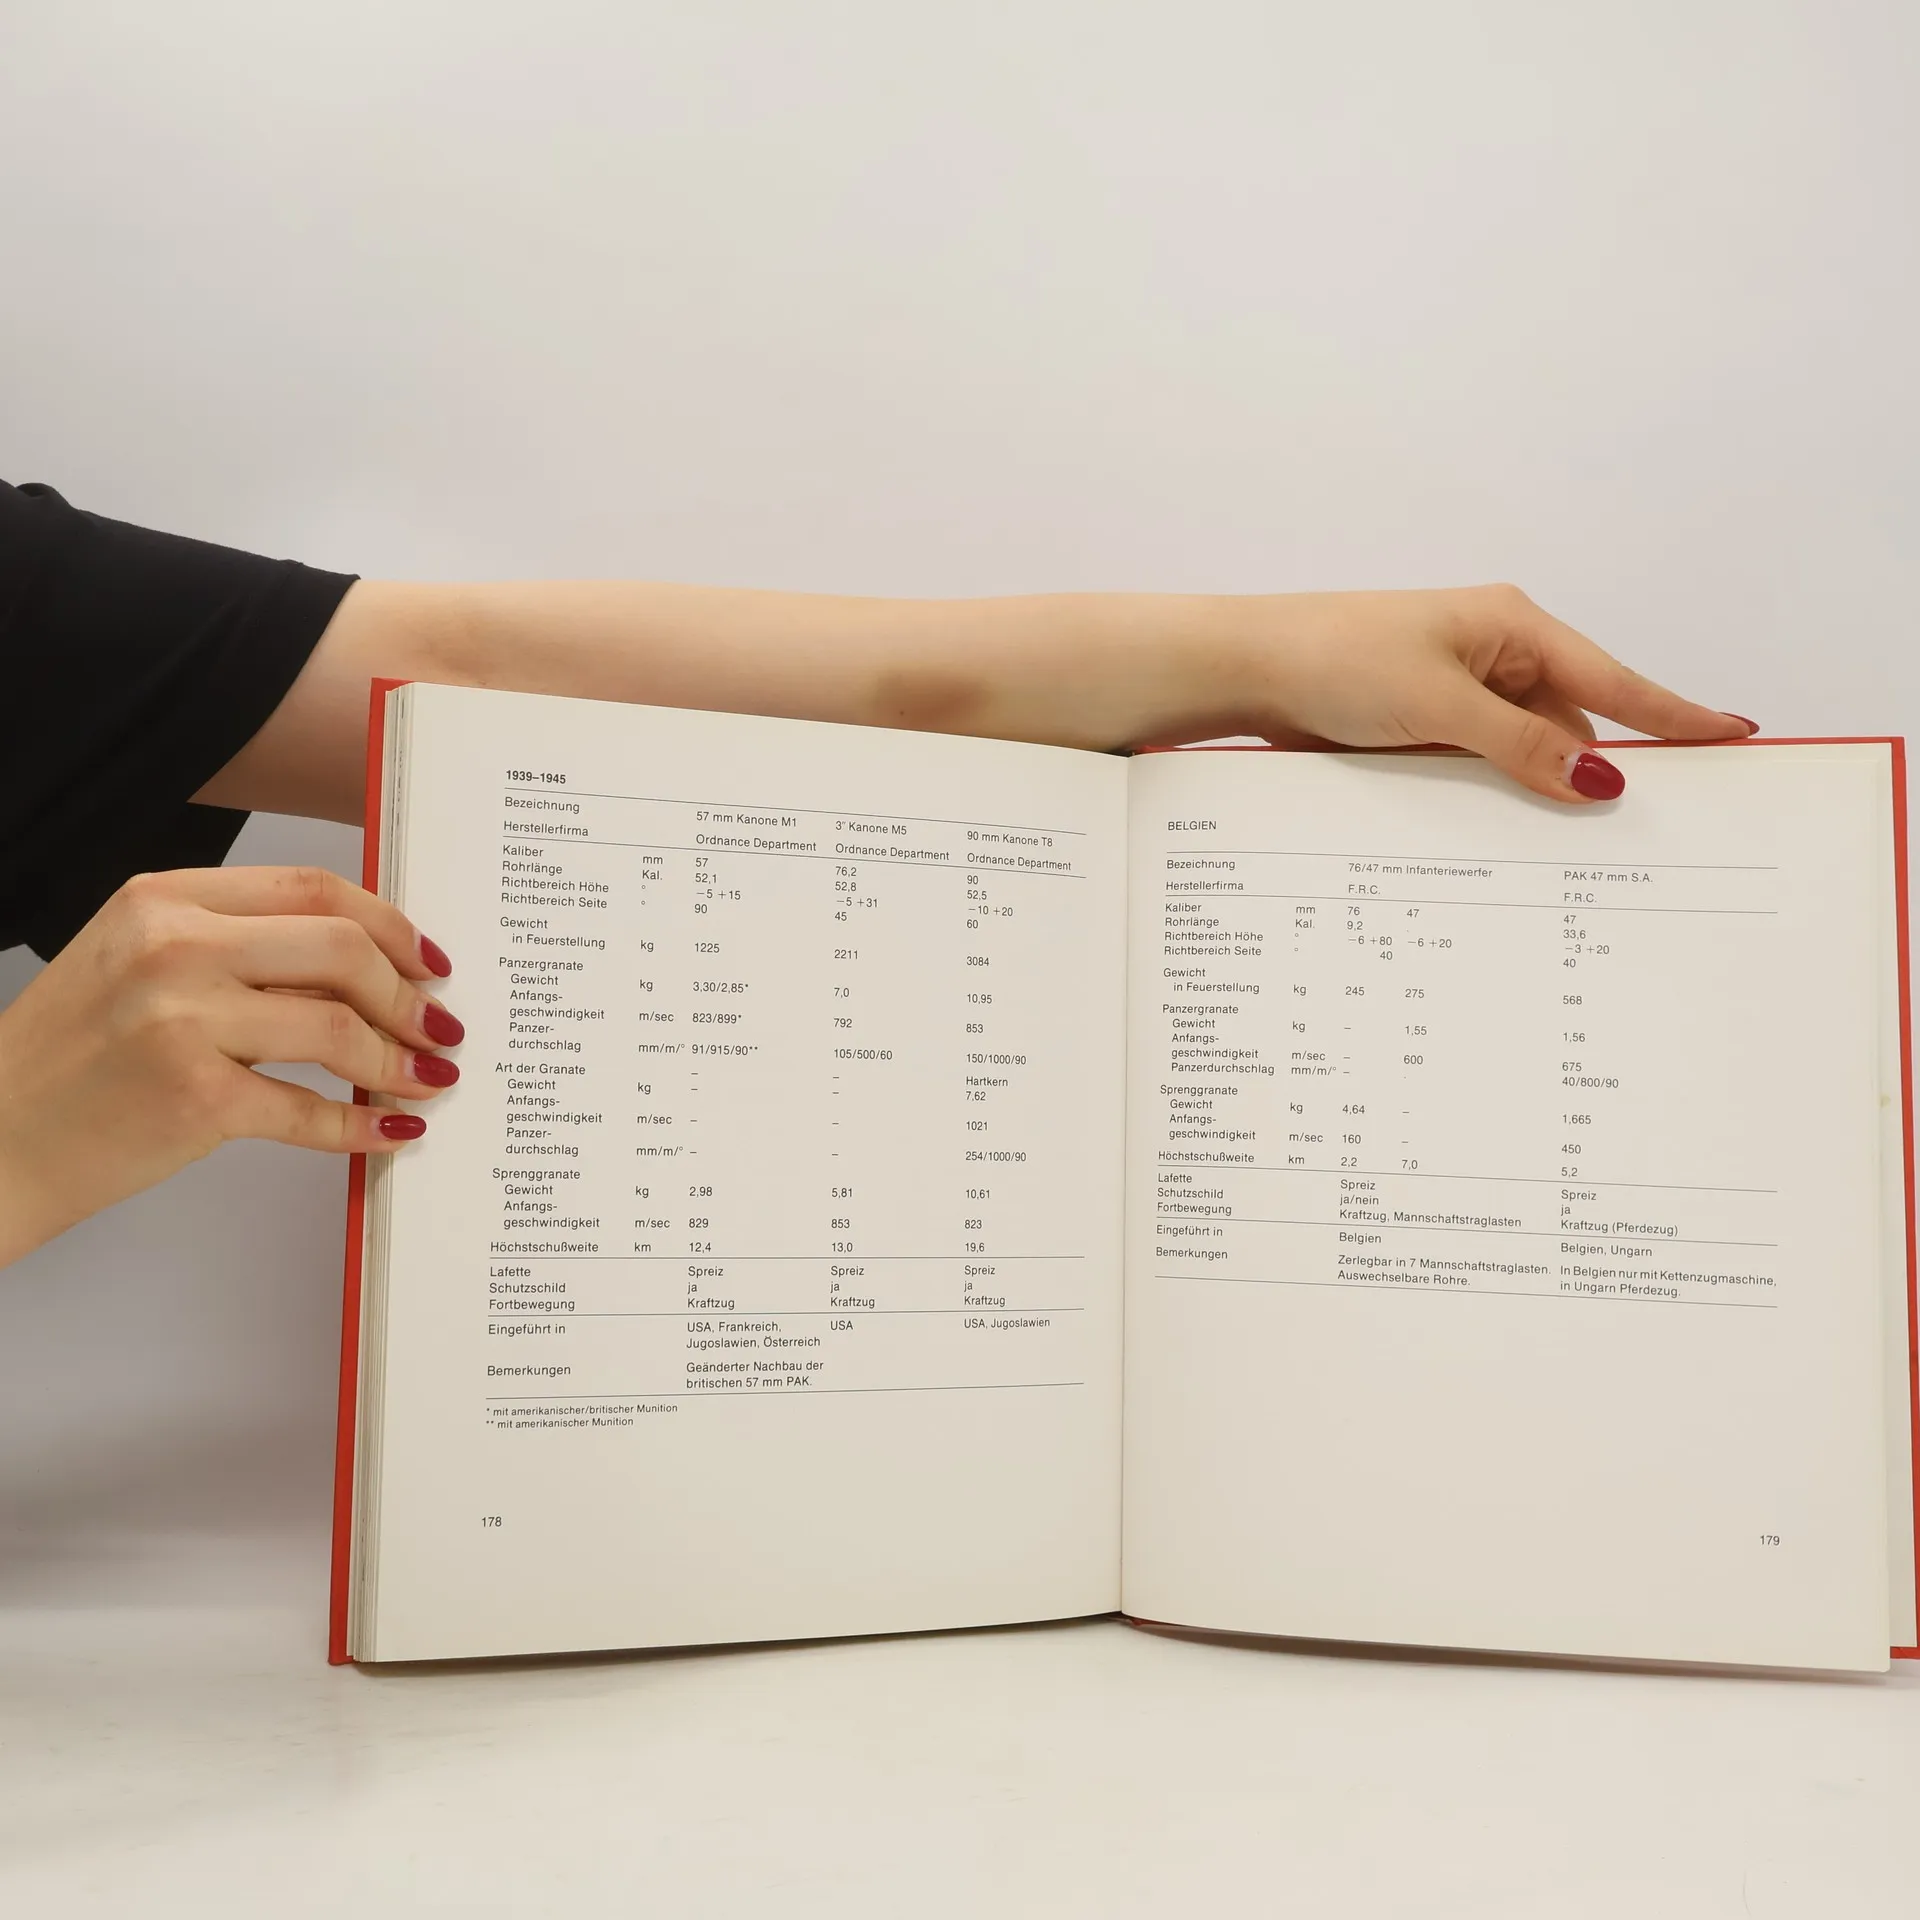 1939–1945
Bezeichnung 57 mm Kanone M1 3" Kanone M5 90 mm Kanone T8
Herstellerfirma Ordnance Department Ordnance Department Ordnance Department
Kaliber mm 57 76,2 90
Rohrlänge Kal. 52,1 52,8 52,5
Richtbereich Höhe ° −5 +15 −5 +31 −10 +20
Richtbereich Seite ° 90 45 60
Gewicht
in Feuerstellung kg 1225 2211 3084
Panzergranate
Gewicht kg 3,30/2,85* 7,0 10,95
Anfangs-
geschwindigkeit m/sec 823/899* 792 853
Panzer-
durchschlag mm/m/° 91/915/90** 105/500/60 150/1000/90
Art der Granate – – Hartkern
Gewicht kg – – 7,62
Anfangs-
geschwindigkeit m/sec – – 1021
Panzer-
durchschlag mm/m/° – – 254/1000/90
Sprenggranate
Gewicht kg 2,98 5,81 10,61
Anfangs-
geschwindigkeit m/sec 829 853 823
Höchstschußweite km 12,4 13,0 19,6
Lafette Spreiz Spreiz Spreiz
Schutzschild ja ja ja
Fortbewegung Kraftzug Kraftzug Kraftzug
Eingeführt in USA, Frankreich, USA USA, Jugoslawien
Jugoslawien, Österreich
Bemerkungen Geänderter Nachbau der
britischen 57 mm PAK.
* mit amerikanischer/britischer Munition
** mit amerikanischer Munition
178
BELGIEN
Bezeichnung 76/47 mm Infanteriewerfer PAK 47 mm S.A.
Herstellerfirma F.R.C. F.R.C.
Kaliber mm 76 47 47
Rohrlänge Kal. 9,2 . 33,6
Richtbereich Höhe ° −6 +80 −6 +20 −3 +20
Richtbereich Seite ° 40 40
Gewicht
in Feuerstellung kg 245 275 568
Panzergranate
Gewicht kg – 1,55 1,56
Anfangs-
geschwindigkeit m/sec – 600 675
Panzerdurchschlag mm/m/° – . 40/800/90
Sprenggranate
Gewicht kg 4,64 – 1,665
Anfangs-
geschwindigkeit m/sec 160 – 450
Höchstschußweite km 2,2 7,0 5,2
Lafette Spreiz Spreiz
Schutzschild ja/nein ja
Fortbewegung Kraftzug, Mannschaftstraglasten Kraftzug (Pferdezug)
Eingeführt in Belgien Belgien, Ungarn
Bemerkungen Zerlegbar in 7 Mannschaftstraglasten. In Belgien nur mit Kettenzugmaschine,
Auswechselbare Rohre. in Ungarn Pferdezug.
179